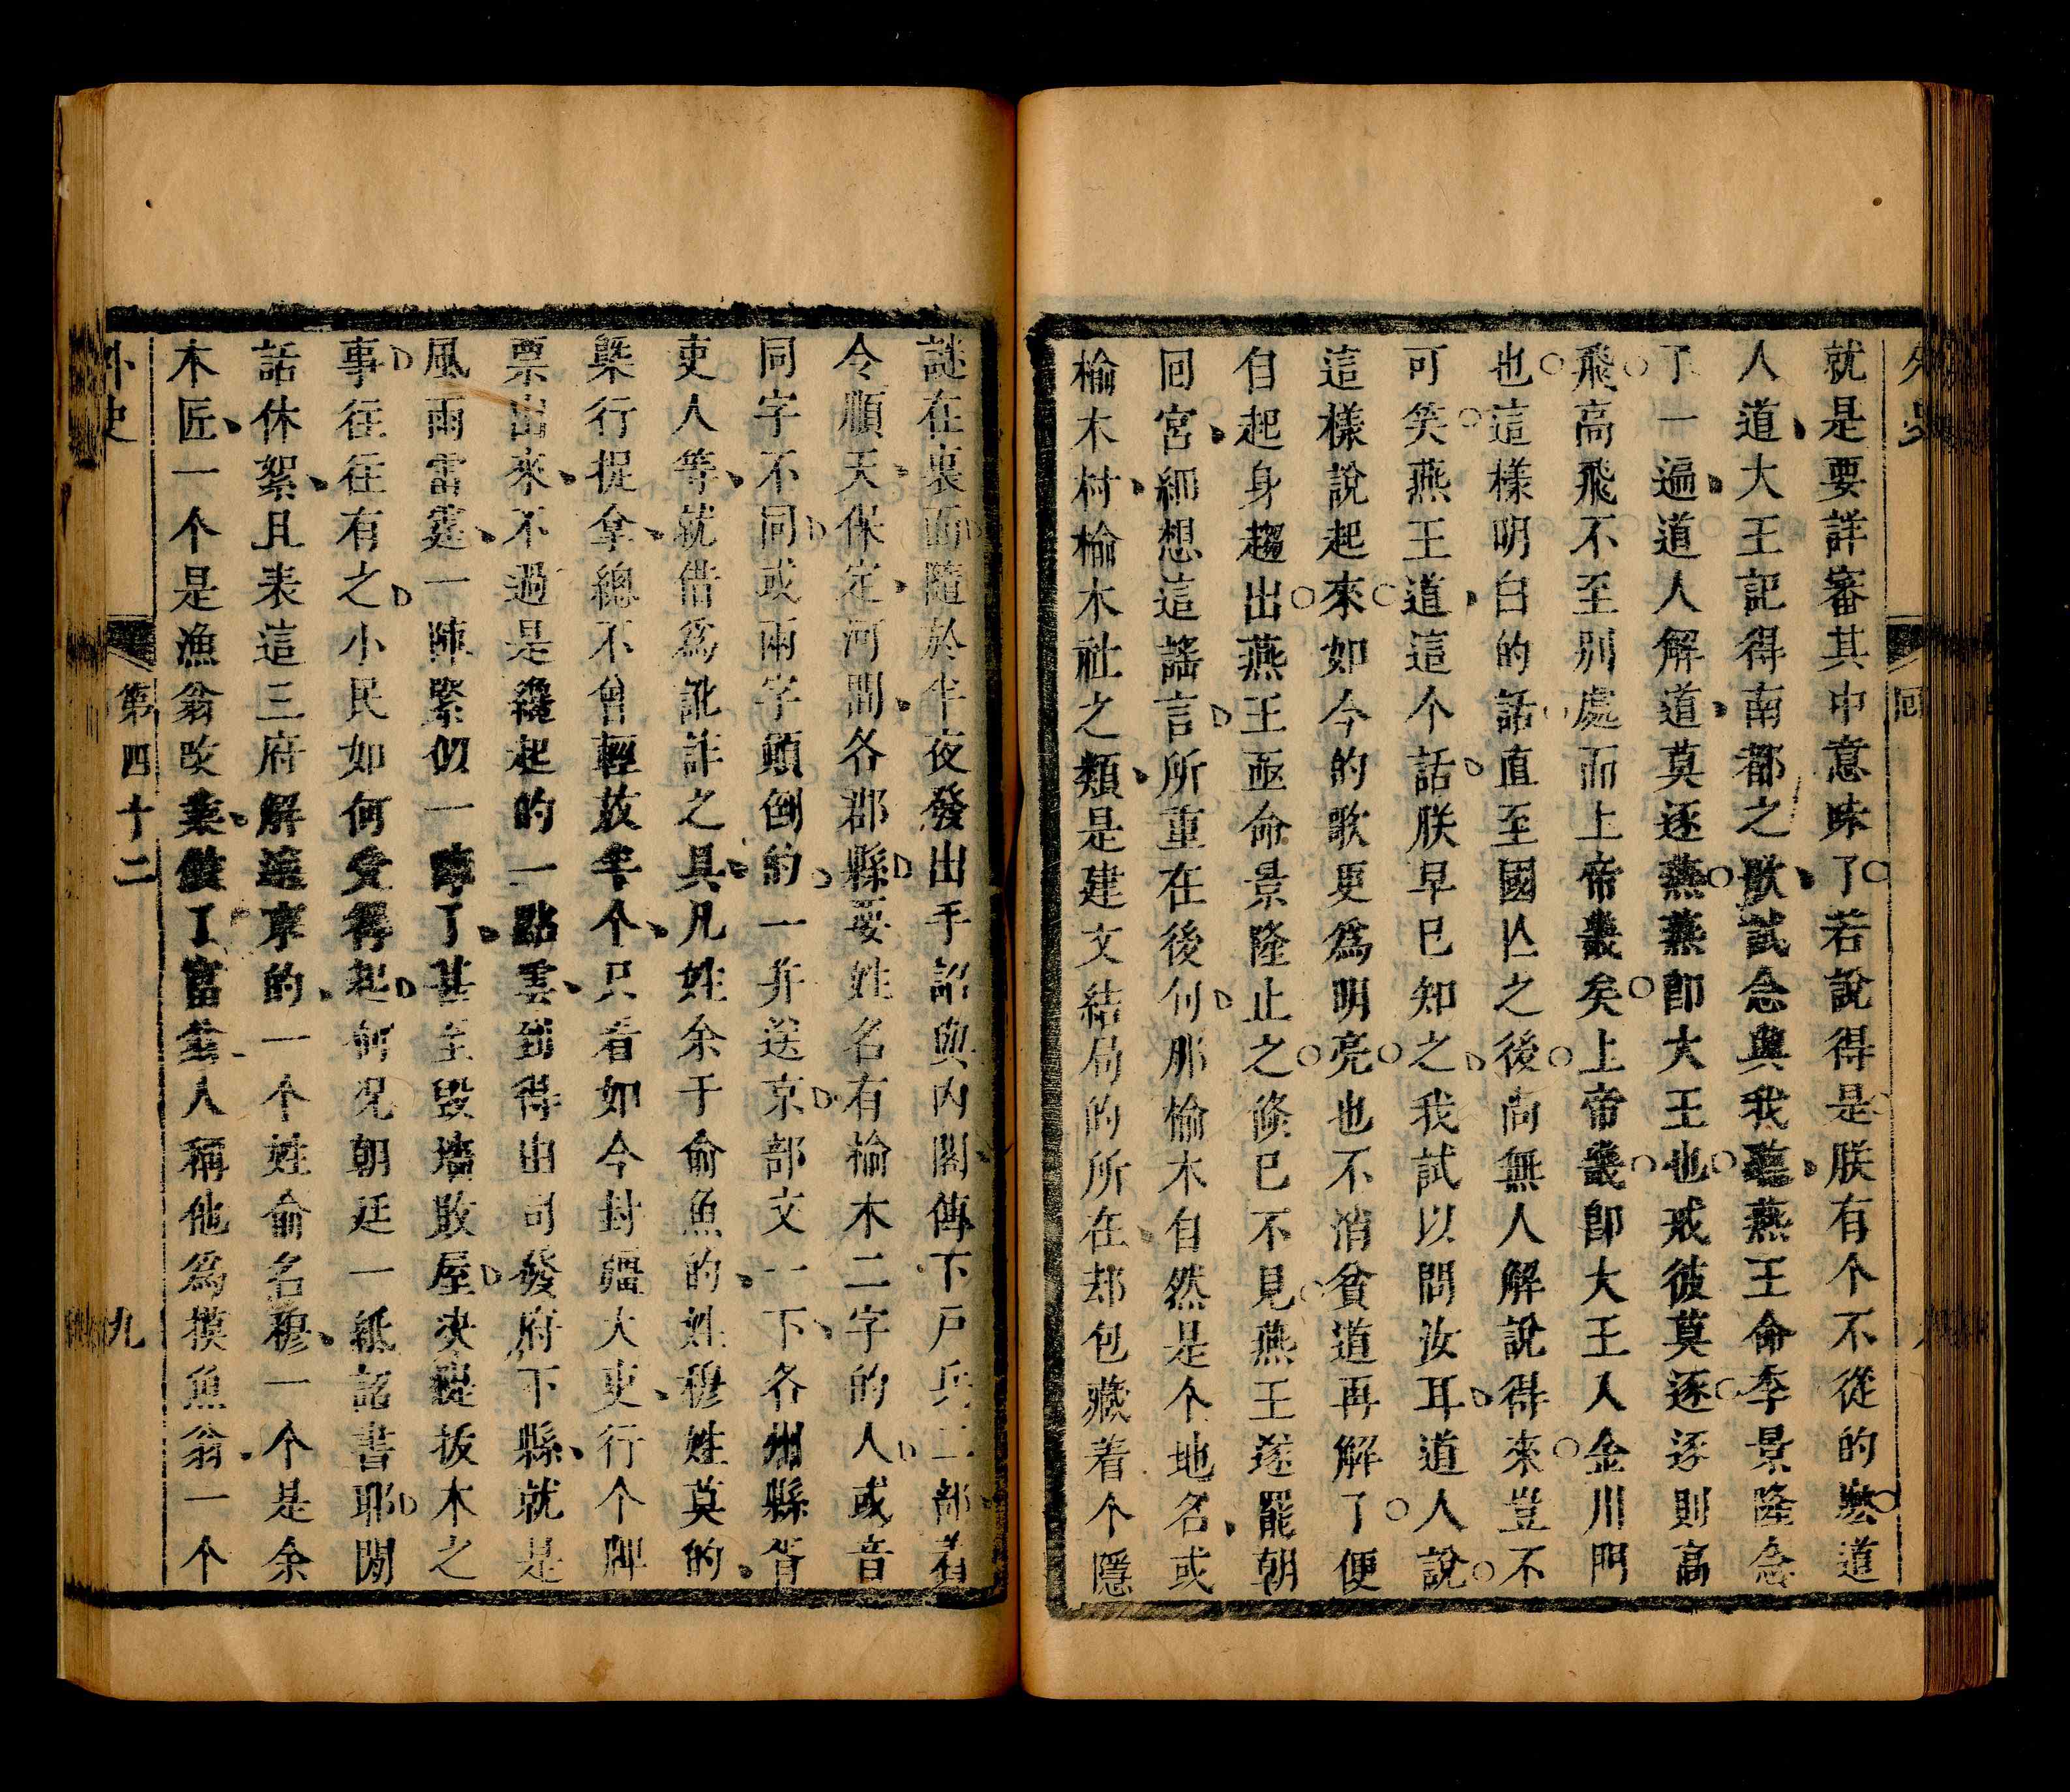 就是要詳審其中意味了若說得是朕有个不從的麽道
人道大王記得南都之歌試念與我聽燕王命李景隆念
了一遍道人解道莫逐燕燕卽大王也戒彼莫逐逐則高
飛高飛不至别處而上帝畿矣上帝畿卽大王入金川門
也這樣明白的話直至國亾之後尚無人解說得來豈不
可笑燕王道這个話朕早已知之我試以問汝耳道人說
這樣說起來如今的歌更爲明亮也不消貧道再解了便
自起身趨出燕王亟命景隆止之倐已不見燕王遂罷朝
囘宮細想這謠言所重在後何那愉木自然是个地名或
榆木村榆木社之類是建文結局的所在却包藏着个隱
謎在裏面隨於半夜發出手詔與内閣傳下戸兵二部着
令順天保定河間各郡縣要姓名有榆木二字的人或音
同字不同或兩字顛倒的一并送京部文一下各州縣胥
吏人等就借爲訛詐之具凡姓余于俞魚的姓穆姓莫的
槩行捉拿總不曾輕放半个只看如今封疆大吏行个牌
票出來不過是纔起的一點雲到得由司發府下縣就是
風雨雷霆一陣緊似一陣了甚至毁墻敗屋決隄拔木之
事往往有之小民如何受得起何况朝廷一紙詔書耶閒
話休絮且表這三府解進京的一个姓俞名穆一个是余
木匠一个是漁翁改業做了富翁人稱他爲摸魚翁一个
外史
第四十二
九
囘